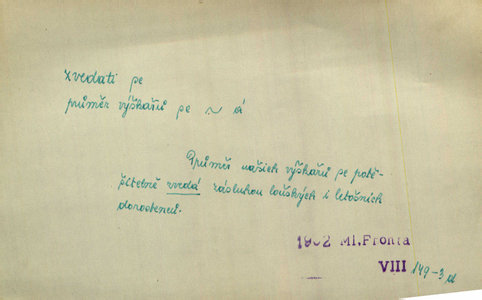 zvedati se
průměr výškařů se ~ á
Průměr našich výškařů se potě-
šitelně zvedá zásluhou loňských i letošních
dorostenců.
1952 Ml. Fronta
VIII 149-3 d